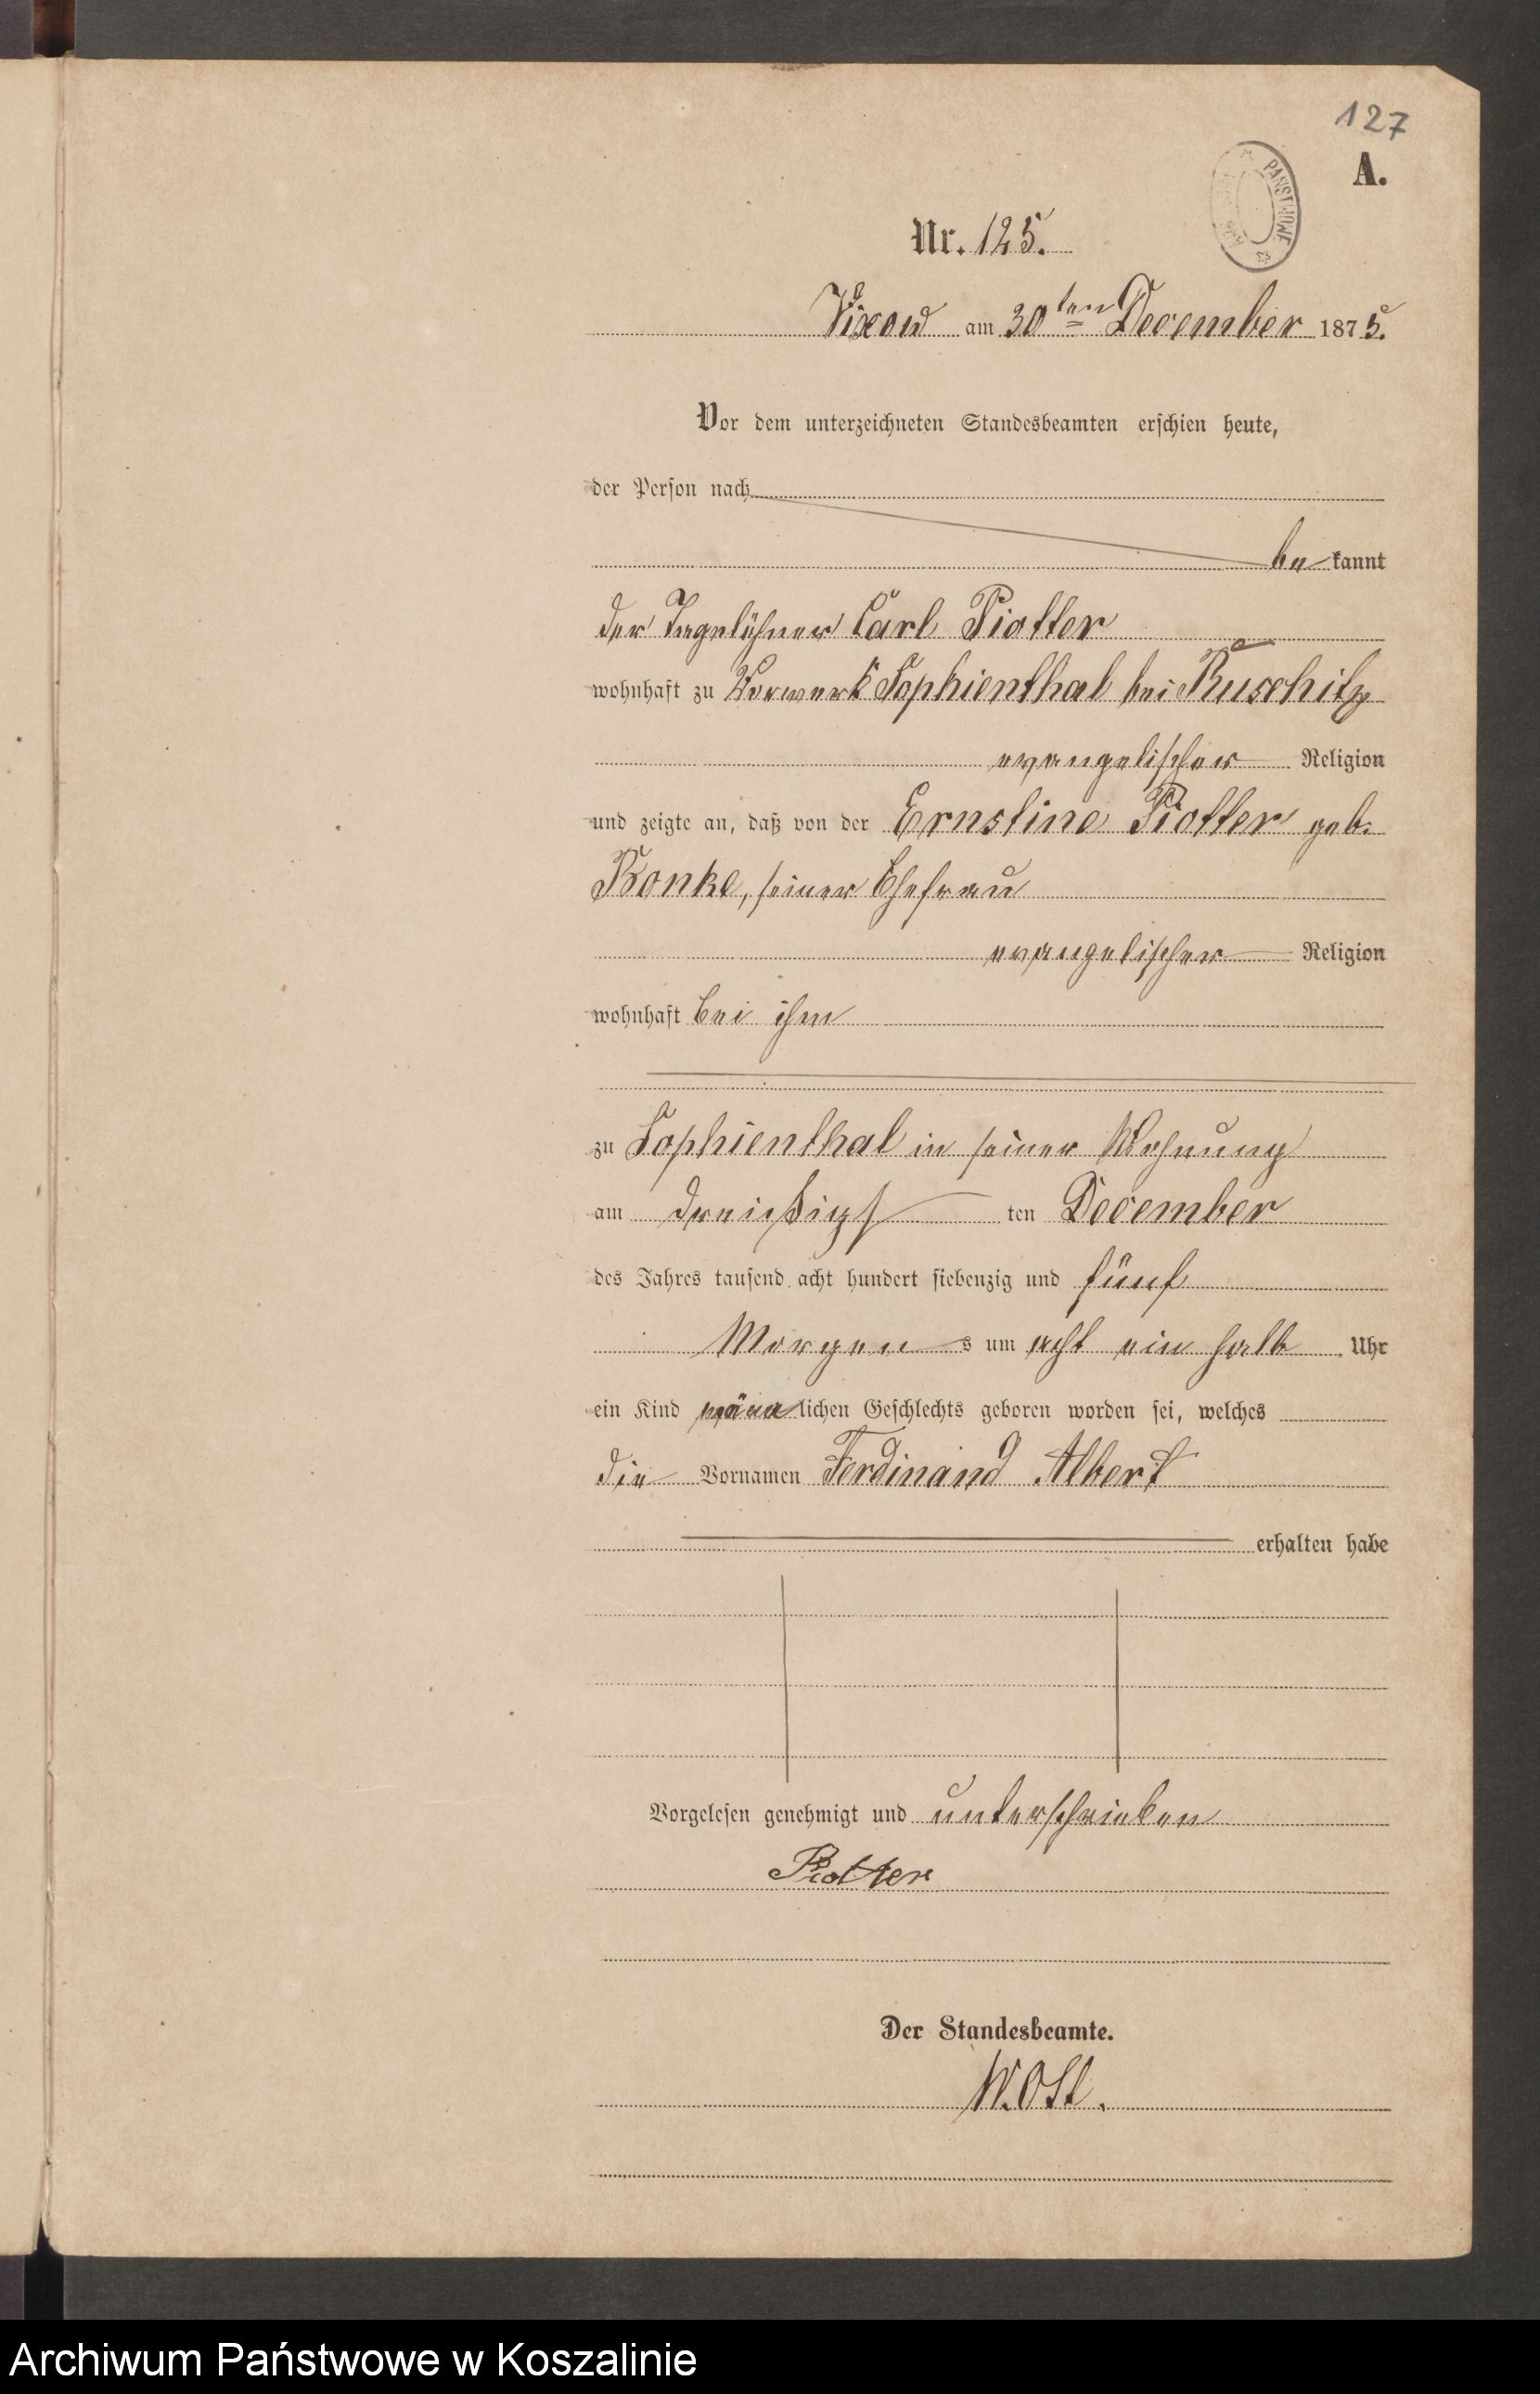 127
A.
PAŃSTWOWE
Nr. 125.
Vixow am 30ten December 1875.
Vor dem unterzeichneten Standesbeamten erschien heute,
der Person nach
bekannt
der Tagelöhner Carl Piotter
wohnhaft zu Vorwerk Sophienthal bei Ruschitz
evangelischer Religion
und zeigte an, daß von der Ernstine Piotter geb.
Ronke, seiner Ehefrau
evangelischer Religion
wohnhaft bei ihm
zu Sophienthal in seiner Wohnung
am dreißigsten December
des Jahres tausend acht hundert siebenzig und fünf
Morgens um acht ein halb Uhr
ein Kind männlichen Geschlechts geboren worden sei, welches
die Vornamen Ferdinand Albert
erhalten habe
Vorgelesen genehmigt und unterschrieben
Piotter
Der Standesbeamte.
W. Ost.
Archiwum Państwowe w Koszalinie